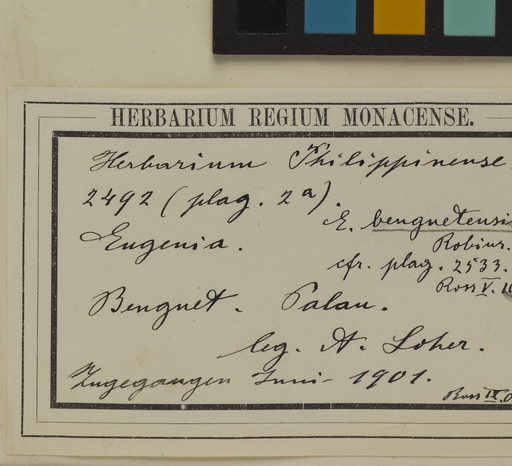 HERBARIUM REGIUM MONACENSE.
Herbarium Philippinense
2492 (plag. 2a).
E. benguetensis
Eugenia.
Robins.
cfr. plag. 2533.
Ross V.
Benguet. Palau.
leg. A. Loher.
Zugegangen Juni 1901.
Ross IX.